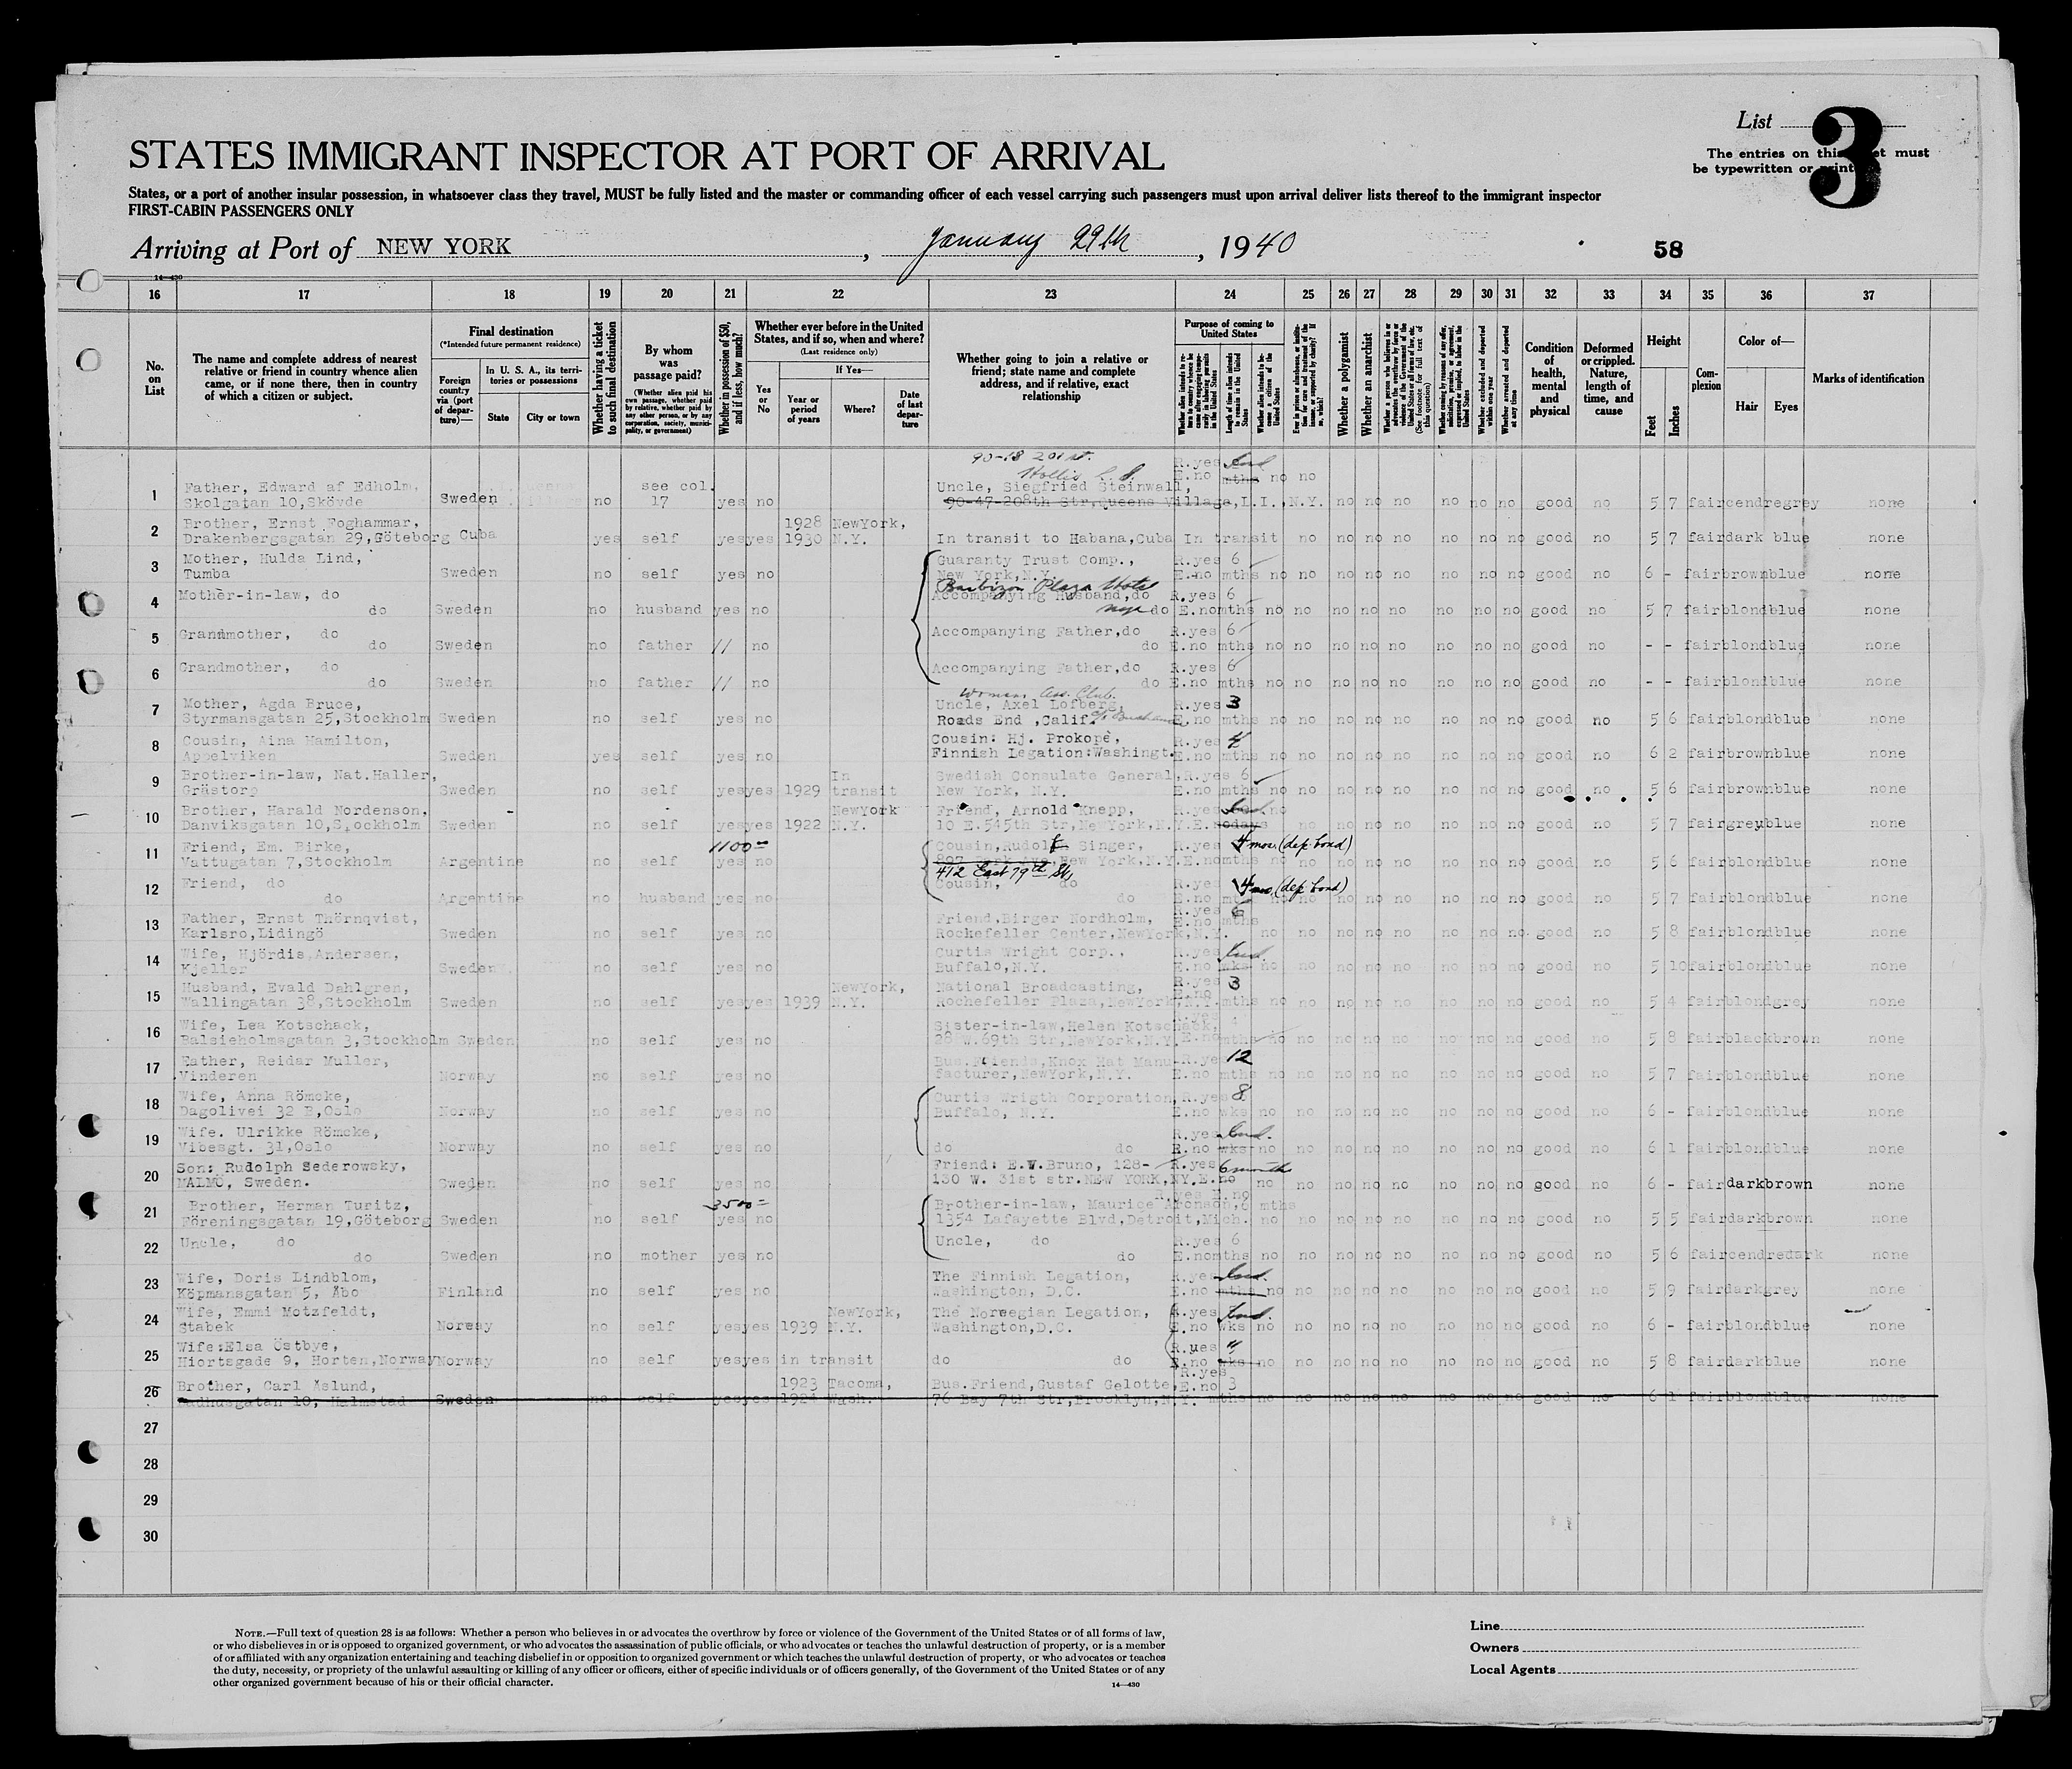 List 3
The entries on this sheet must
be typewritten or printed
STATES IMMIGRANT INSPECTOR AT PORT OF ARRIVAL
States, or a port of another insular possession, in whatsoever class they travel, MUST be fully listed and the master or commanding officer of each vessel carrying such passengers must upon arrival deliver lists thereof to the immigrant inspector
FIRST-CABIN PASSENGERS ONLY
Arriving at Port of NEW YORK, January 29th, 1940
58
14—430
16 17 18 19 20 21 22 23 24 25 26 27 28 29 30 31 32 33 34 35 36 37
No. on List
The name and complete address of nearest relative or friend in country whence alien came, or if none there, then in country of which a citizen or subject.
Final destination
(*Intended future permanent residence)
Foreign country via (port of departure)—
In U. S. A., its territories or possessions
State
City or town
Whether having a ticket to such final destination
By whom was passage paid?
(Whether alien paid his own passage, whether paid by relative, whether paid by any other person, or by any corporation, society, municipality, or government)
Whether in possession of $50, and if less, how much?
Whether ever before in the United States, and if so, when and where?
(Last residence only)
Yes or No
If Yes—
Year or period of years
Where?
Date of last departure
Whether going to join a relative or friend; state name and complete address, and if relative, exact relationship
Purpose of coming to United States
Length of time alien intends to remain in the United States
Whether alien intends to become a citizen of the United States
Whether a polygamist
Whether an anarchist
(See footnote for full text of this question)
Whether excluded and deported within one year
Whether arrested and deported at any time
Condition of health, mental and physical
Deformed or crippled. Nature, length of time, and cause
Height
Feet
Inches
Complexion
Color of—
Hair
Eyes
Marks of identification
90-18 201 st.
Hollis L. I.
1 Father, Edward af Edholm, see col. Uncle, Siegfried Steinwall, R.yes E.no mths no no
Skolgatan 10,Skövde Sweden no 17 yes no 90-47-208th Str,Queens Village,L.I.,N.Y. no no no no no no good no 5 7 fair cendre grey none
2 Brother, Ernst Foghammar, 1928 NewYork,
Drakenbergsgatan 29,Göteborg Cuba yes self yes yes 1930 N.Y. In transit to Habana,Cuba In transit no no no no no no no good no 5 7 fair dark blue none
3 Mother, Hulda Lind, Guaranty Trust Comp., R.yes 6
Tumba Sweden no self yes no New York,N.Y. E.no mths no no no no no no no no good no 6 - fair brown blue none
Barbizon Plaza Hotel
4 Mother-in-law, do Accompanying Husband,do R.yes 6
do Sweden no husband yes no nyc do E.no mths no no no no no no no no good no 5 7 fair blond blue none
5 Grandmother, do Accompanying Father,do R.yes 6
do Sweden no father // no do E.no mths no no no no no no no no good no - - fair blond blue none
6 Grandmother, do Accompanying Father,do R.yes 6
do Sweden no father // no do E.no mths no no no no no no no no good no - - fair blond blue none
Womens Ass. Club.
7 Mother, Agda Bruce, Uncle, Axel Lofberg, R.yes 3
Styrmansgatan 25,Stockholm Sweden no self yes no Roads End ,Calif. E.no mths no no no no no no no no good no 5 6 fair blond blue none
8 Cousin, Aina Hamilton, Cousin: Hj. Prokopè, R.yes 4
Appelviken Sweden yes self yes no Finnish Legation:Washingt. E.no mths no no no no no no no no good no 6 2 fair brown blue none
9 Brother-in-law, Nat.Haller, In Swedish Consulate General, R.yes 6
Grästorp Sweden no self yes yes 1929 transit New York, N.Y. E.no mths no no no no no no no no good no 5 6 fair brown blue none
10 Brother, Harald Nordenson, NewYork Friend, Arnold Knepp, R.yes no
Danviksgatan 10,Stockholm Sweden no self yes yes 1922 N.Y. 10 E.545th Str,NewYork,N.Y. E.no days no no no no no no no good no 5 7 fair grey blue none
1100=
11 Friend, Em. Birke, Cousin,Rudolf Singer, R.yes 4 mos (dep. bond)
Vattugatan 7,Stockholm Argentine no self yes no York Ave,New York,N.Y. E.no mths no no no no no no no no good no 5 6 fair blond blue none
412 East 79th St,
12 Friend, do Cousin, do R.yes 4 mos, (dep bond)
do Argentine no husband yes no do E.no no no no no no no no no good no 5 7 fair blond blue none
13 Father, Ernst Thörnqvist, Friend,Birger Nordholm, R.yes 6 E.no mths
Karlsro,Lidingö Sweden no self yes no Rochefeller Center,NewYork,N.Y. no no no no no no no no good no 5 8 fair blond blue none
14 Wife, Hjördis Andersen, Curtis Wright Corp., R.yes
Kjeller Sweden no self yes no Buffalo,N.Y. E.no wks no no no no no no no no good no 5 10 fair blond blue none
15 Husband, Evald Dahlgren, NewYork, National Broadcasting, R.yes 3 E.no
Wallingatan 38,Stockholm Sweden no self yes yes 1939 N.Y. Rochefeller Plaza,NewYork,N.Y. mths no no no no no no no no good no 5 4 fair blond grey none
16 Wife, Lea Kotschack, Sister-in-law,Helen Kotschack, R.yes
Balsieholmsgatan 3,Stockholm Sweden no self yes no 28 W.69th Str,NewYork,N.Y. E.no mths no no no no no no no no good no 5 8 fair black brown none
17 Father, Reidar Muller, Bus.Friends,Knox Hat Manu- R.yes 12
Vinderen Norway no self yes no facturer,NewYork,N.Y. E.no mths no no no no no no no no good no 5 7 fair blond blue none
18 Wife, Anna Römcke, Curtis Wrigth Corporation, R.yes 8
Dagolivei 32 B,Oslo Norway no self yes no Buffalo, N.Y. E.no wks no no no no no no no no good no 6 - fair blond blue none
19 Wife. Ulrikke Römcke, R.yes
Vibesgt. 31,Oslo Norway no self yes no do do E.no wks no no no no no no no no good no 6 1 fair blond blue none
20 Son: Rudolph Sederowsky, Friend: E.W.Bruno, 128- R.yes 6 months
MALMÖ, Sweden. Sweden no self yes no 130 W. 31st str.NEW YORK,NY. E.no no no no no no no no no good no 6 - fair dark brown none
3500=
R.yes E.no
21 Brother, Herman Turitz, Brother-in-law, Maurice Aronson,6 mths
Föreningsgatan 19,Göteborg Sweden no self yes no 1354 Lafayette Blvd,Detroit,Mich. no no no no no no no no good no 5 5 fair dark brown none
22 Uncle, do Uncle, do R.yes 6
do Sweden no mother yes no do E.no mths no no no no no no no no good no 5 6 fair cendre dark none
23 Wife, Doris Lindblom, The Finnish Legation, R.yes
Köpmansgatan 5, Åbo Finland no self yes no Washington, D.C. E.no mths no no no no no no no no good no 5 9 fair dark grey none
24 Wife, Emmi Motzfeldt, NewYork, The Norwegian Legation, R.yes
Stabek Norway no self yes yes 1939 N.Y. Washington,D.C. E.no wks no no no no no no no no good no 6 - fair blond blue none
25 Wife:Elsa Östbye, R.yes "
Hiortsgade 9, Horten,Norway Norway no self yes yes in transit do do E.no wks no no no no no no no no good no 5 8 fair dark blue none
R.yes
26 Brother, Carl Åslund, 1923 Tacoma, Bus.Friend,Gustaf Gelotte, E.no 3
Badhusgatan 10, Halmstad Sweden no self yes yes 1924 Wash. 76 Bay 7th Str,Brooklyn,N.Y. mths no no no no no no no no good no 6 1 fair blond blue none
27
28
29
30
NOTE.—Full text of question 28 is as follows: Whether a person who believes in or advocates the overthrow by force or violence of the Government of the United States or of all forms of law,
or who disbelieves in or is opposed to organized government, or who advocates the assassination of public officials, or who advocates or teaches the unlawful destruction of property, or is a member
of or affiliated with any organization entertaining and teaching disbelief in or opposition to organized government or which teaches the unlawful destruction of property, or who advocates or teaches
the duty, necessity, or propriety of the unlawful assaulting or killing of any officer or officers, either of specific individuals or of officers generally, of the Government of the United States or of any
other organized government because of his or their official character.
14—430
Line
Owners
Local Agents